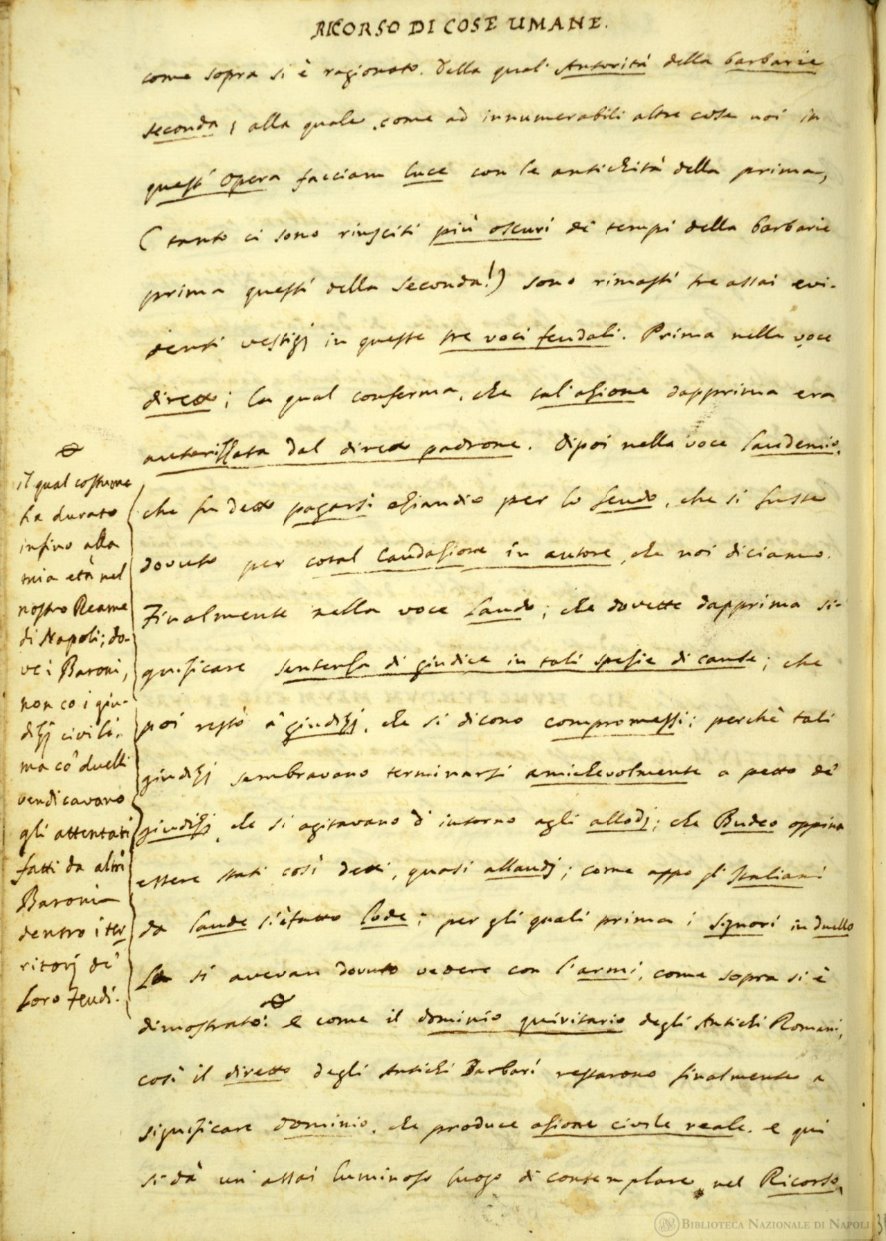 RICORSO DI COSE UMANE.
come sopra si è ragionato. Della qual' Autorità della barbarie
seconda, alla quale, come ad innumerabili altre cose noi in
quest' Opera facciam luce con le antichità della prima,
(tanto ci sono riusciti più oscuri de' tempi della barbarie
prima questi della seconda!) sono rimasti tre assai evi-
denti vestigj in queste tre voci feudali. Prima nella voce
diretto; la qual conferma, che tal' azione dapprima era
autorizzata dal diretto padrone. Dipoi nella voce laudemio,
che fu detto pagarsi eziandio per lo feudo, che si fusse
dovuto per cotal laudazione in autore, che noi diciamo.
Finalmente nella voce Laudo; che dovette dapprima si-
gnificare sentenza di giudice in tali spezie di cause; che
poi restò a' giudizj, che si dicono compromessi; perchè tali
giudizj sembravano terminarsi amichevolmente a petto de'
giudizj, che si agitavano d' intorno agli allodj; che Budeo oppina
essere stati così detti, quasi allaudj; come appo gl' Italiani
da laude si è fatto lode; per gli quali prima i signori in duello
si avevan dovuto vedere con l'armi, come sopra si è
dimostrato: e come il dominio quiritario degli Antichi Romani,
così il diretto degli Antichi Barbari restarono finalmente a
significare dominio, che produce azione civile reale. e qui
si dà un' assai luminoso luogo di contemplare nel Ricorso,
il qual costume
ha durato
infino alla
mia età nel
nostro Reame
di Napoli; do-
ve i Baroni,
non co i giu-
dizj civili,
ma co' duelli
vendicavano
gli attentati
fatti da altri
Baroni
dentro i ter-
ritorj de'
loro Feudi.
BIBLIOTECA NAZIONALE DI NAPOLI